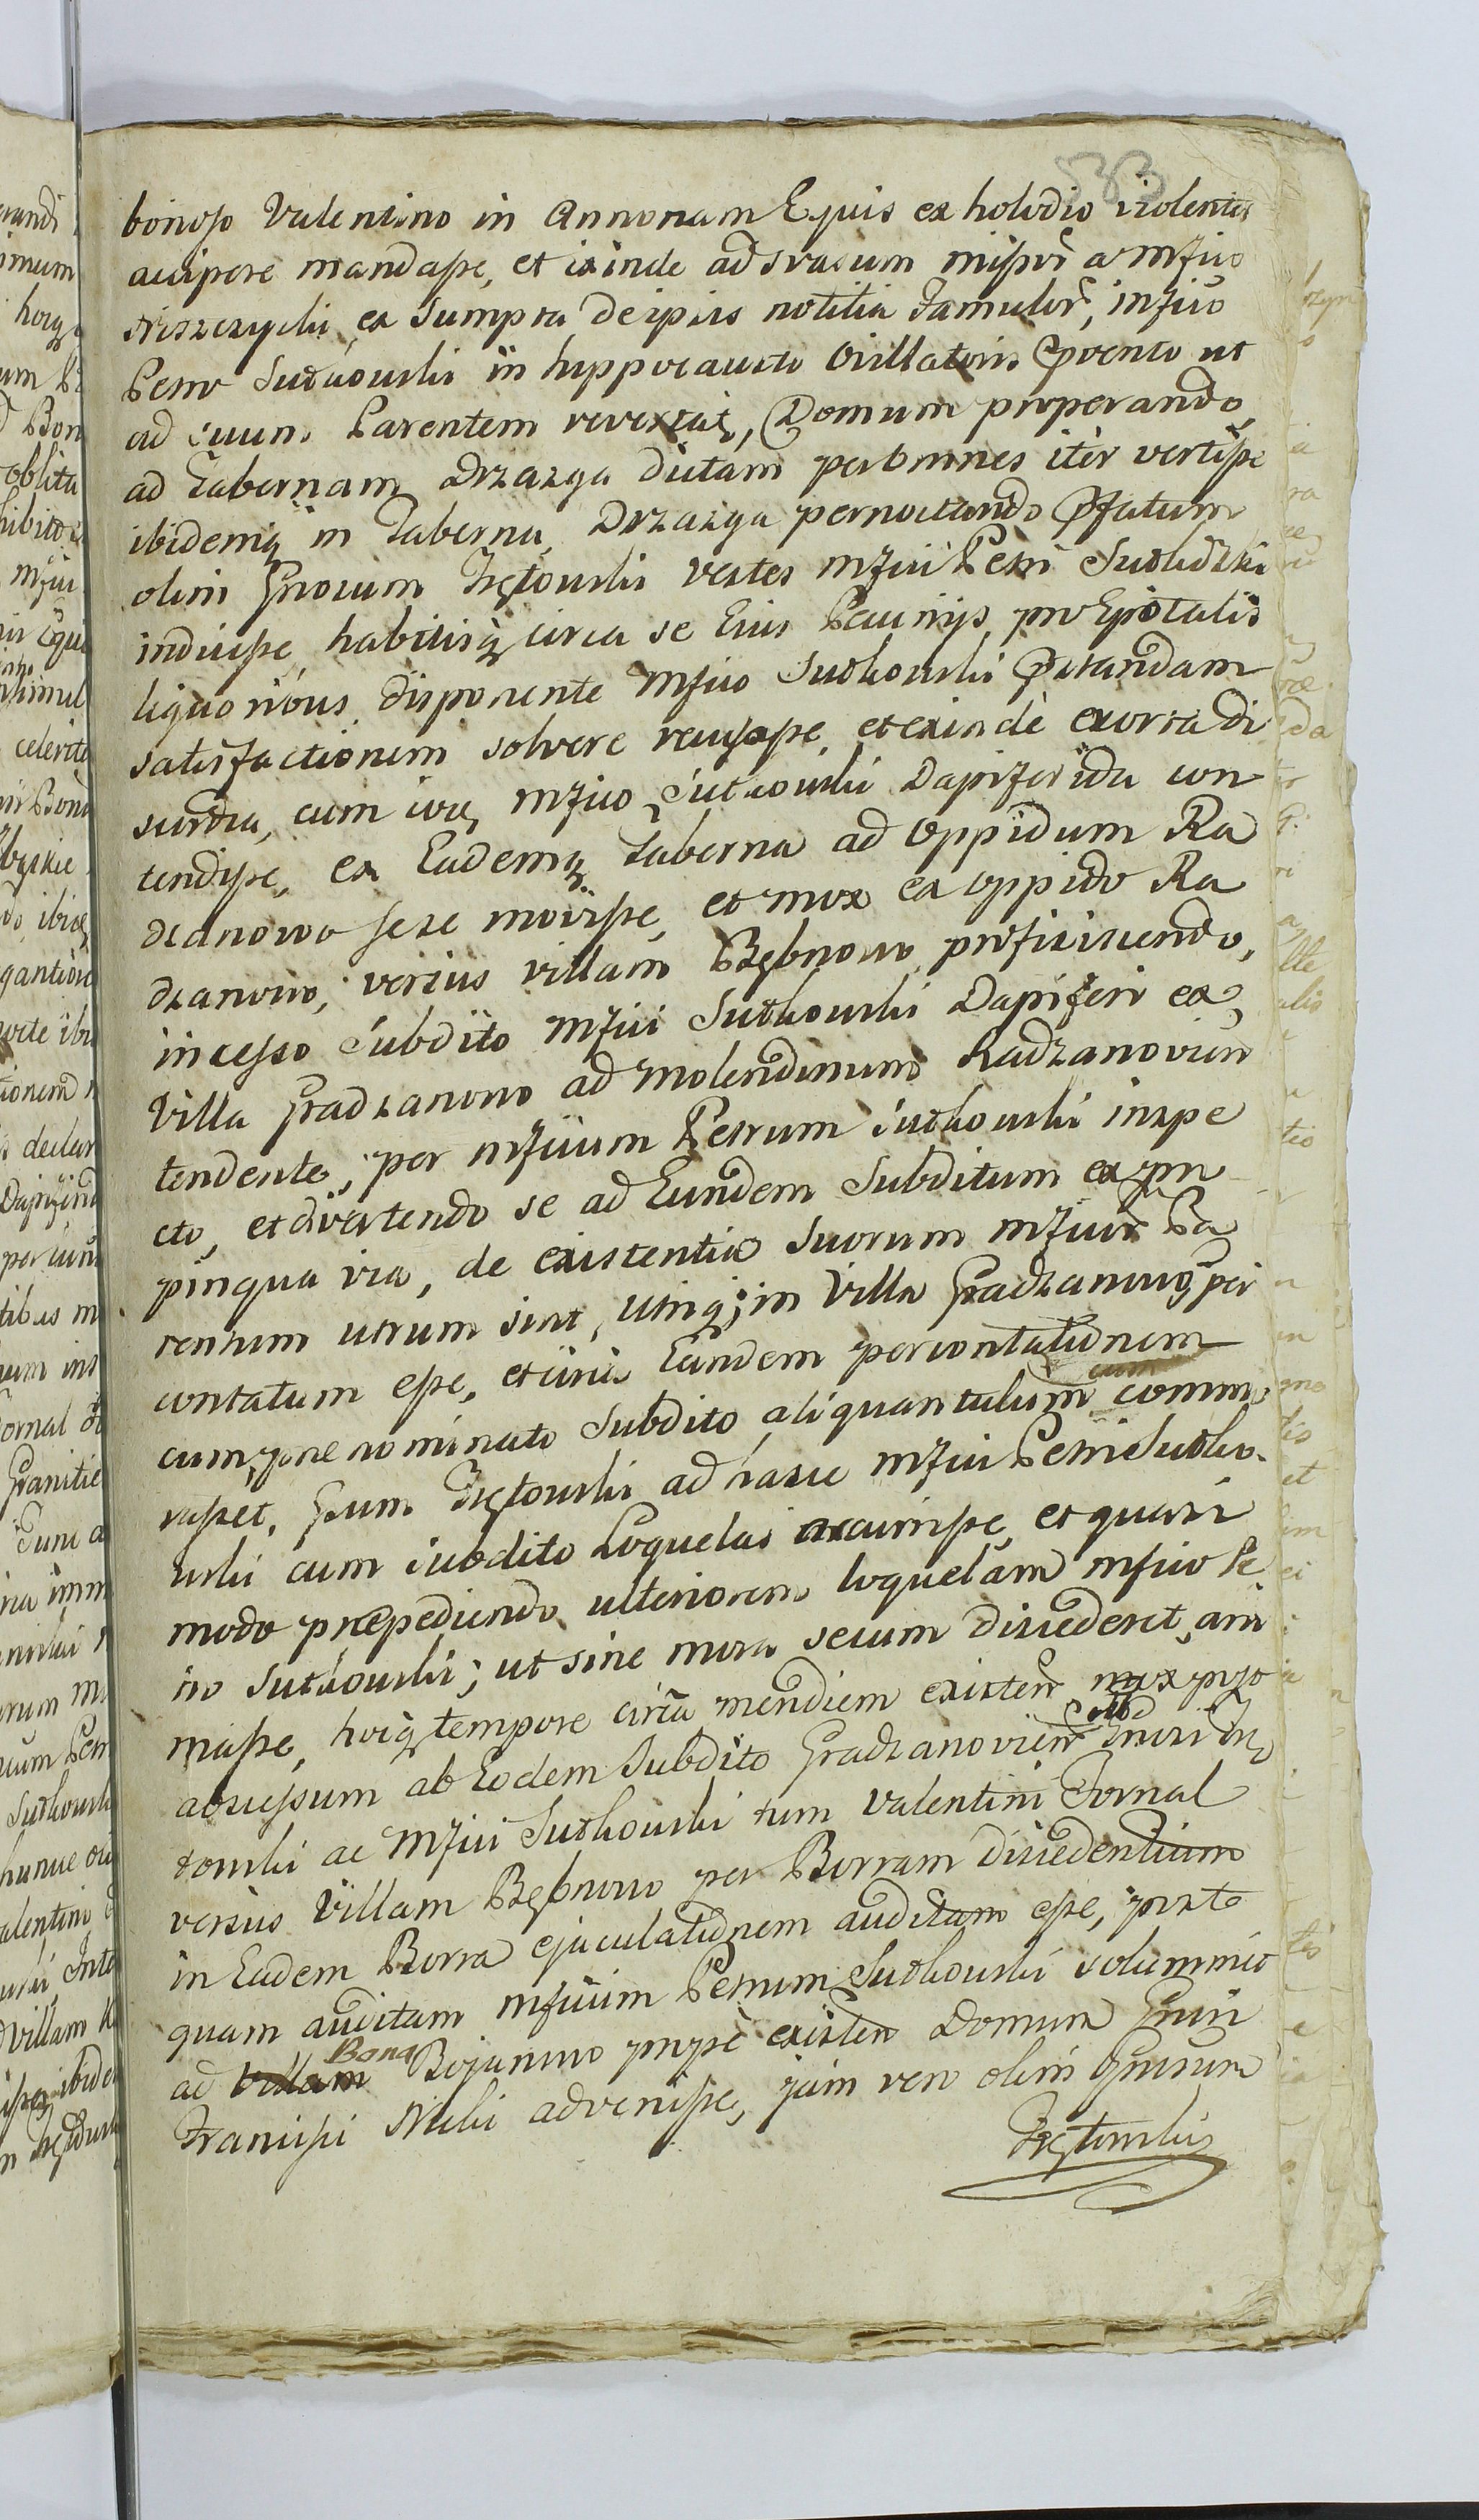 533
bonoso Valentino in Annonam Equis ex holodio violenter
accipere mandasse, et exinde ad Srasum missor a Mfico
Niszczycki ex Sumpta de ipsis notitia Famulor, Mfico
Petro Sutkowski in hyppocausto Villatoris Pventо ut
ad suum Parentem revertatz, Domum properando
ad Tabernam Drzazga dictam per omnes iter vertisse
ibidemq in Taberna Drzazga pernoctando Pfatum
olim Gnosum Frętowski vestes Mfici Petri Sutkowski
induisse, habitisq circa se Eius Pecunijs, pro Epotatis
liquoribus disponente Mfico Sutkowski Pstandam
satisfactionem solvere recusasse, et exinde exorta di
scordia, cum eodem Mfico Sutkowski Dapiferida con
tendisse, ex Eademq Taberna ad Oppidum Ra
dzanowo sese movisse, et mox ex oppido Ra
dzanowo, versus villam Bębnowo proficiscendo,
incesso Subdito Mfici Sutkowski Dapiferi ex
Villa Gradzanowo ad Molendinum Radzanovien
tendente, per Mficum Petrum Sutkowski inspe
cto, et divertendo se ad Eundem Subditum ex pro
pinqua via, de existentia Suorum Mficor Pa
rentum utrum sint, utiq; in Villa Gradzanowo per
contatum esse, et circa Eandem percontationem
cum pone nominato Subdito aliquantulum cum commo
rasset, Gsum Frętowski ad hasce Mfici Petri Sutko
wski cum subdito Loquelas accurrisse, et quasi
modo præpediendo ulteriorem loquelam Mfico Pe
tro Sutkowski; ut sine mora secum discederet, ani
masse, hocq tempore circa meridiem existen mox post
abscessum ab Eodem Subdito Gradzanovien Gnosi Frę
towski ac Mfici Sutkowski tum Valentini Fornal
versus Villam Bębnowo per Borram discedentium
in Eadem Borra ejaculationem auditam esse, post
quam auditam Mficum Petrum Sutkowski solummo
ad Villam Bona Bojanowo prope existen Domum Gnsi
Francisci Milii advenisse, jam vero olim Gnosum
Frętowski